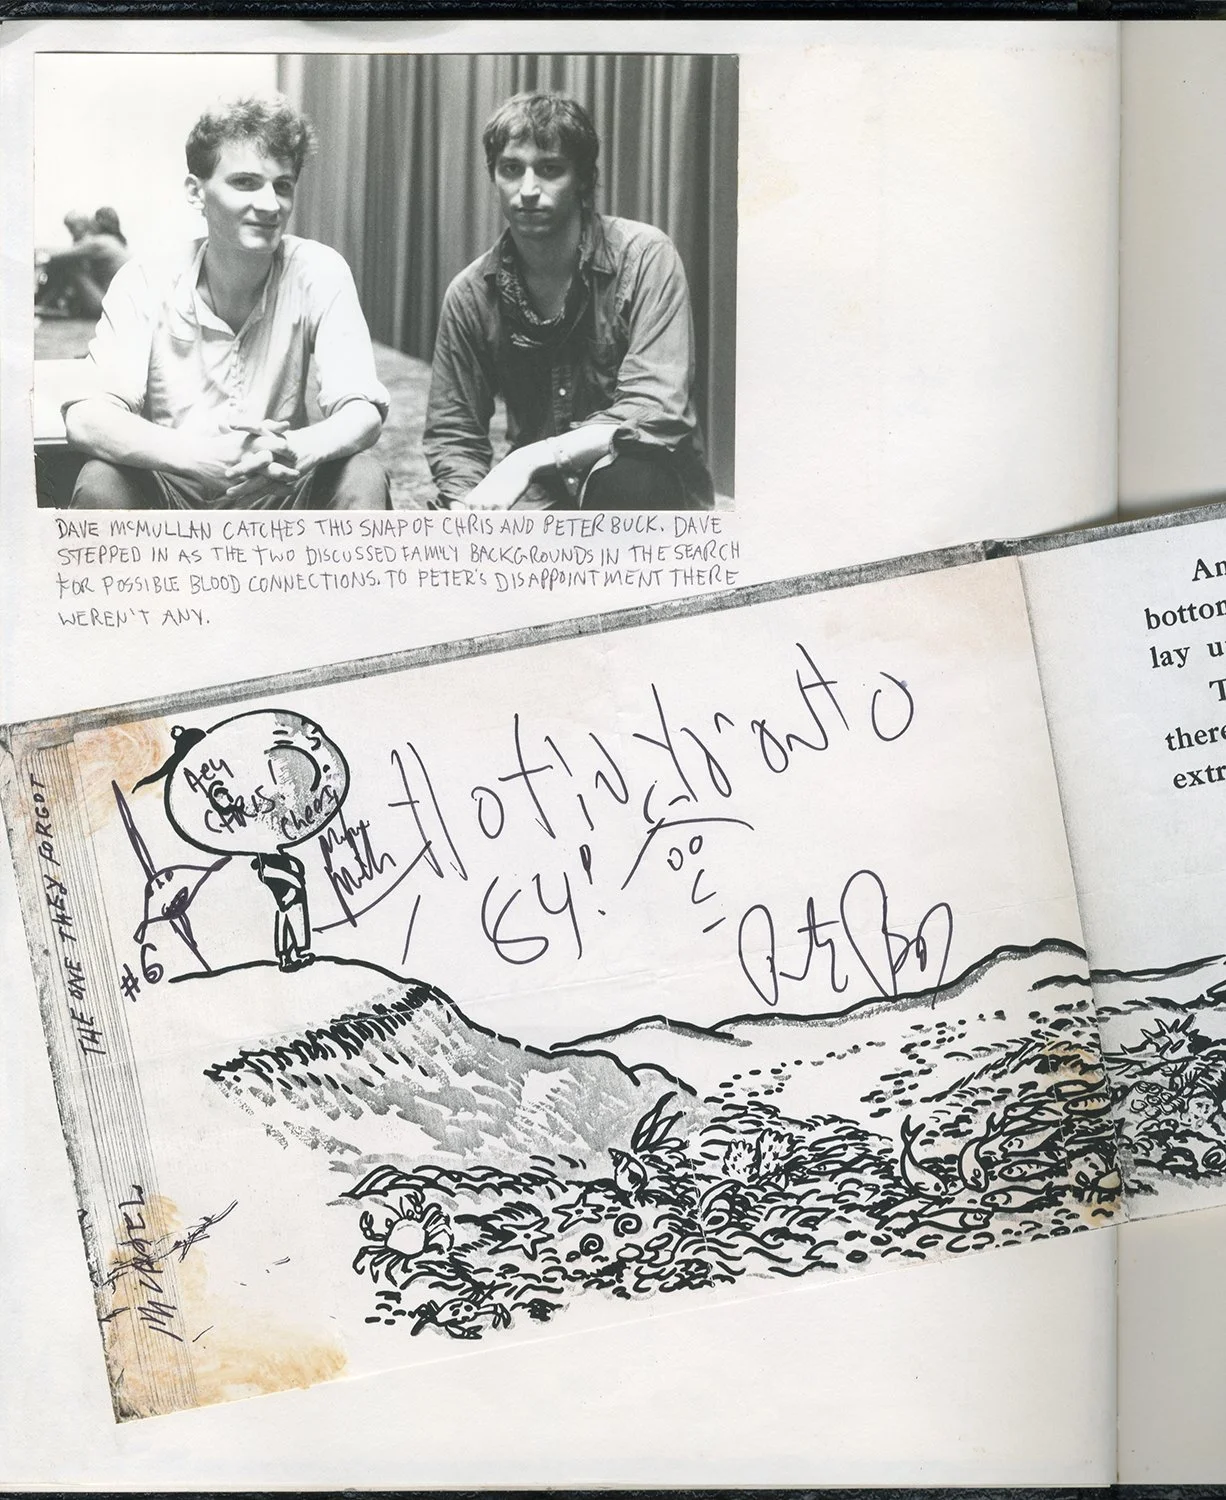 DAVE MCMULLAN CATCHES THIS SNAP OF CHRIS AND PETER BUCK. DAVE
STEPPED IN AS THE TWO DISCUSSED FAMILY BACKGROUNDS IN THE SEARCH
FOR POSSIBLE BLOOD CONNECTIONS. TO PETER'S DISAPPOINTMENT THERE
WEREN'T ANY.
An
bottom
lay u
T
there
extr
Hey
CHRIS!
Cheers
Mike
Mills
Hot in Toronto
84!
#6
THE ONE THEY FORGOT
MICHAEL